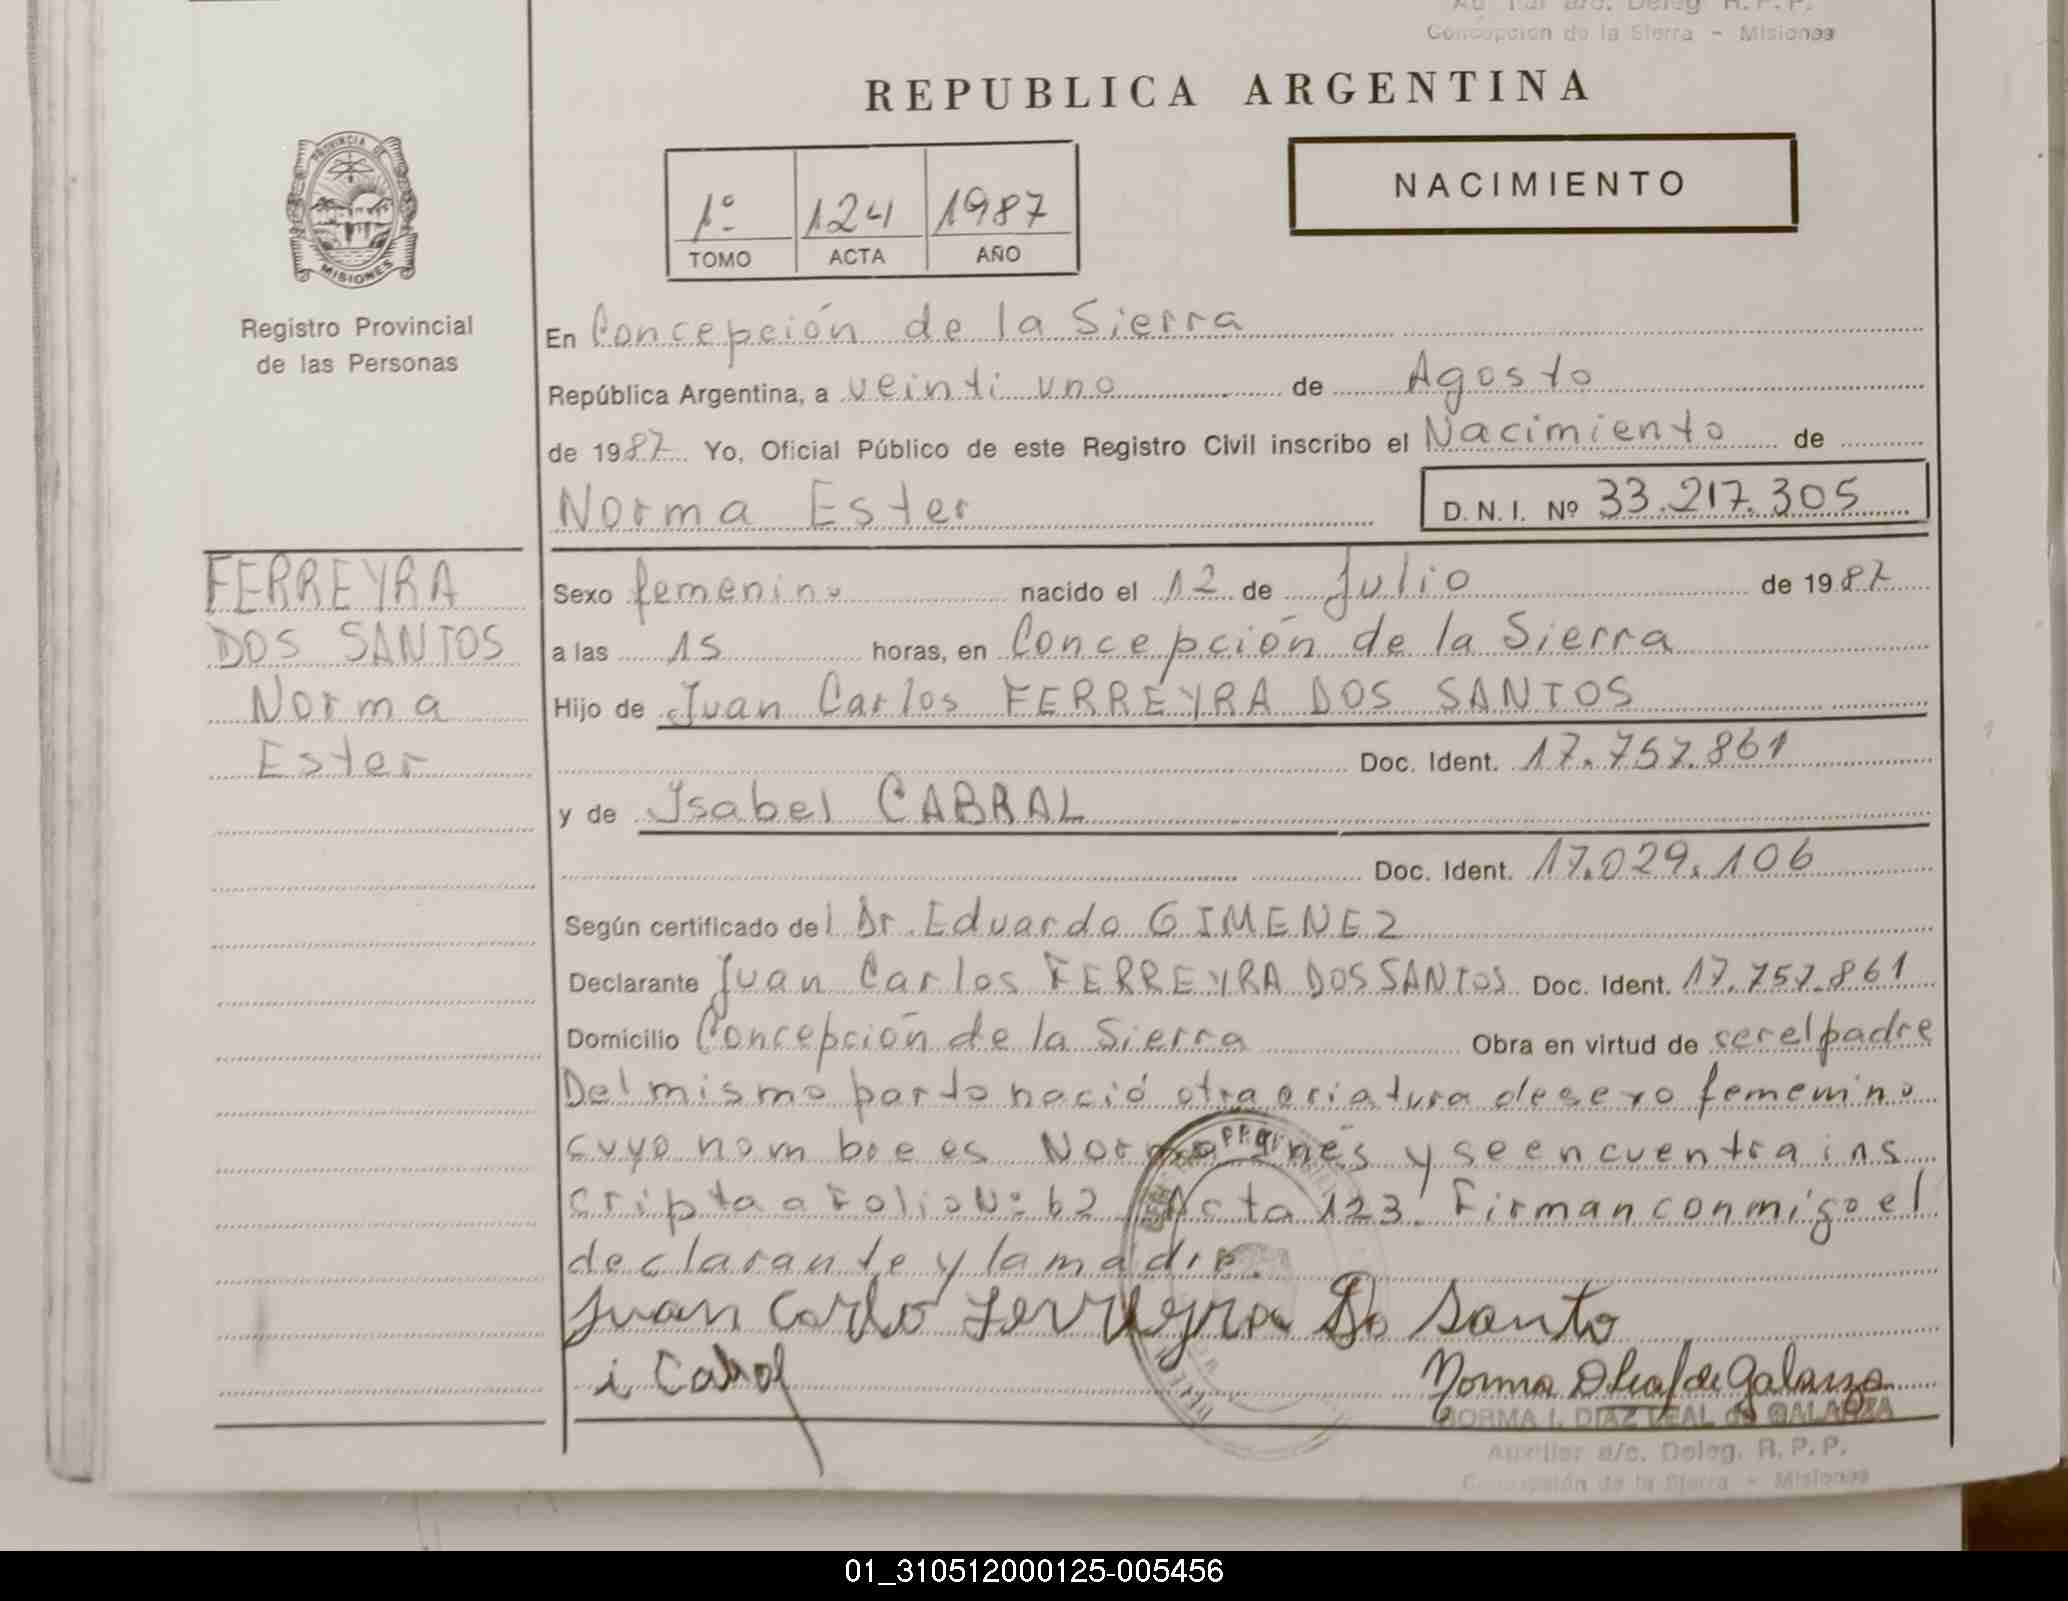 Concepcion de la Sierra - Misiones
REPUBLICA ARGENTINA
PROVINCIA DE
MISIONES
Registro Provincial
de las Personas
1º 124 1987
TOMO ACTA AÑO
NACIMIENTO
En Concepción de la Sierra
República Argentina, a veinti uno de Agosto
de 1987 Yo, Oficial Público de este Registro Civil inscribo el Nacimiento de
Norma Ester D.N.I. Nº 33.217.305
FERREYRA
DOS SANTOS
Norma
Ester
Sexo femenino nacido el 12 de Julio de 1987
a las 15 horas, en Concepción de la Sierra
Hijo de Juan Carlos FERREYRA DOS SANTOS
Doc. Ident. 17.757.861
y de Isabel CABRAL
Doc. Ident. 17.029.106
Según certificado del Dr. Eduardo GIMENEZ
Declarante Juan Carlos FERREYRA DOS SANTOS Doc. Ident. 17.757.861
Domicilio Concepción de la Sierra Obra en virtud de ser el padre
Del mismo parto nació otra criatura de sexo femenino
cuyo nombre es Norma Inés y se encuentra ins
cripta a Folio Nº 62 Acta 123. Firman conmigo el
declarante y la madre.
Juan Carlo Ferreyra Do Santo
i Cabral
Norma D Leal de Galarza
NORMA I. DIAZ LEAL de GALARZA
Auxiliar a/c. Deleg. R.P.P.
Concepción de la Sierra - Misiones
01_310512000125-005456